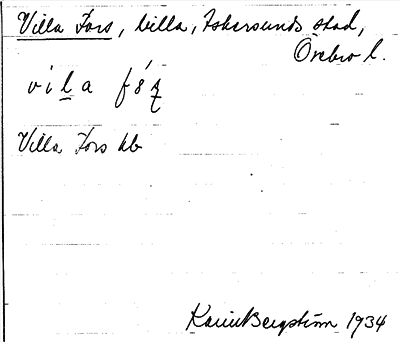 Villa Fors, villa, Askersunds stad,
Örebro l.
Villa Fors hb
Karin Bergström 1934